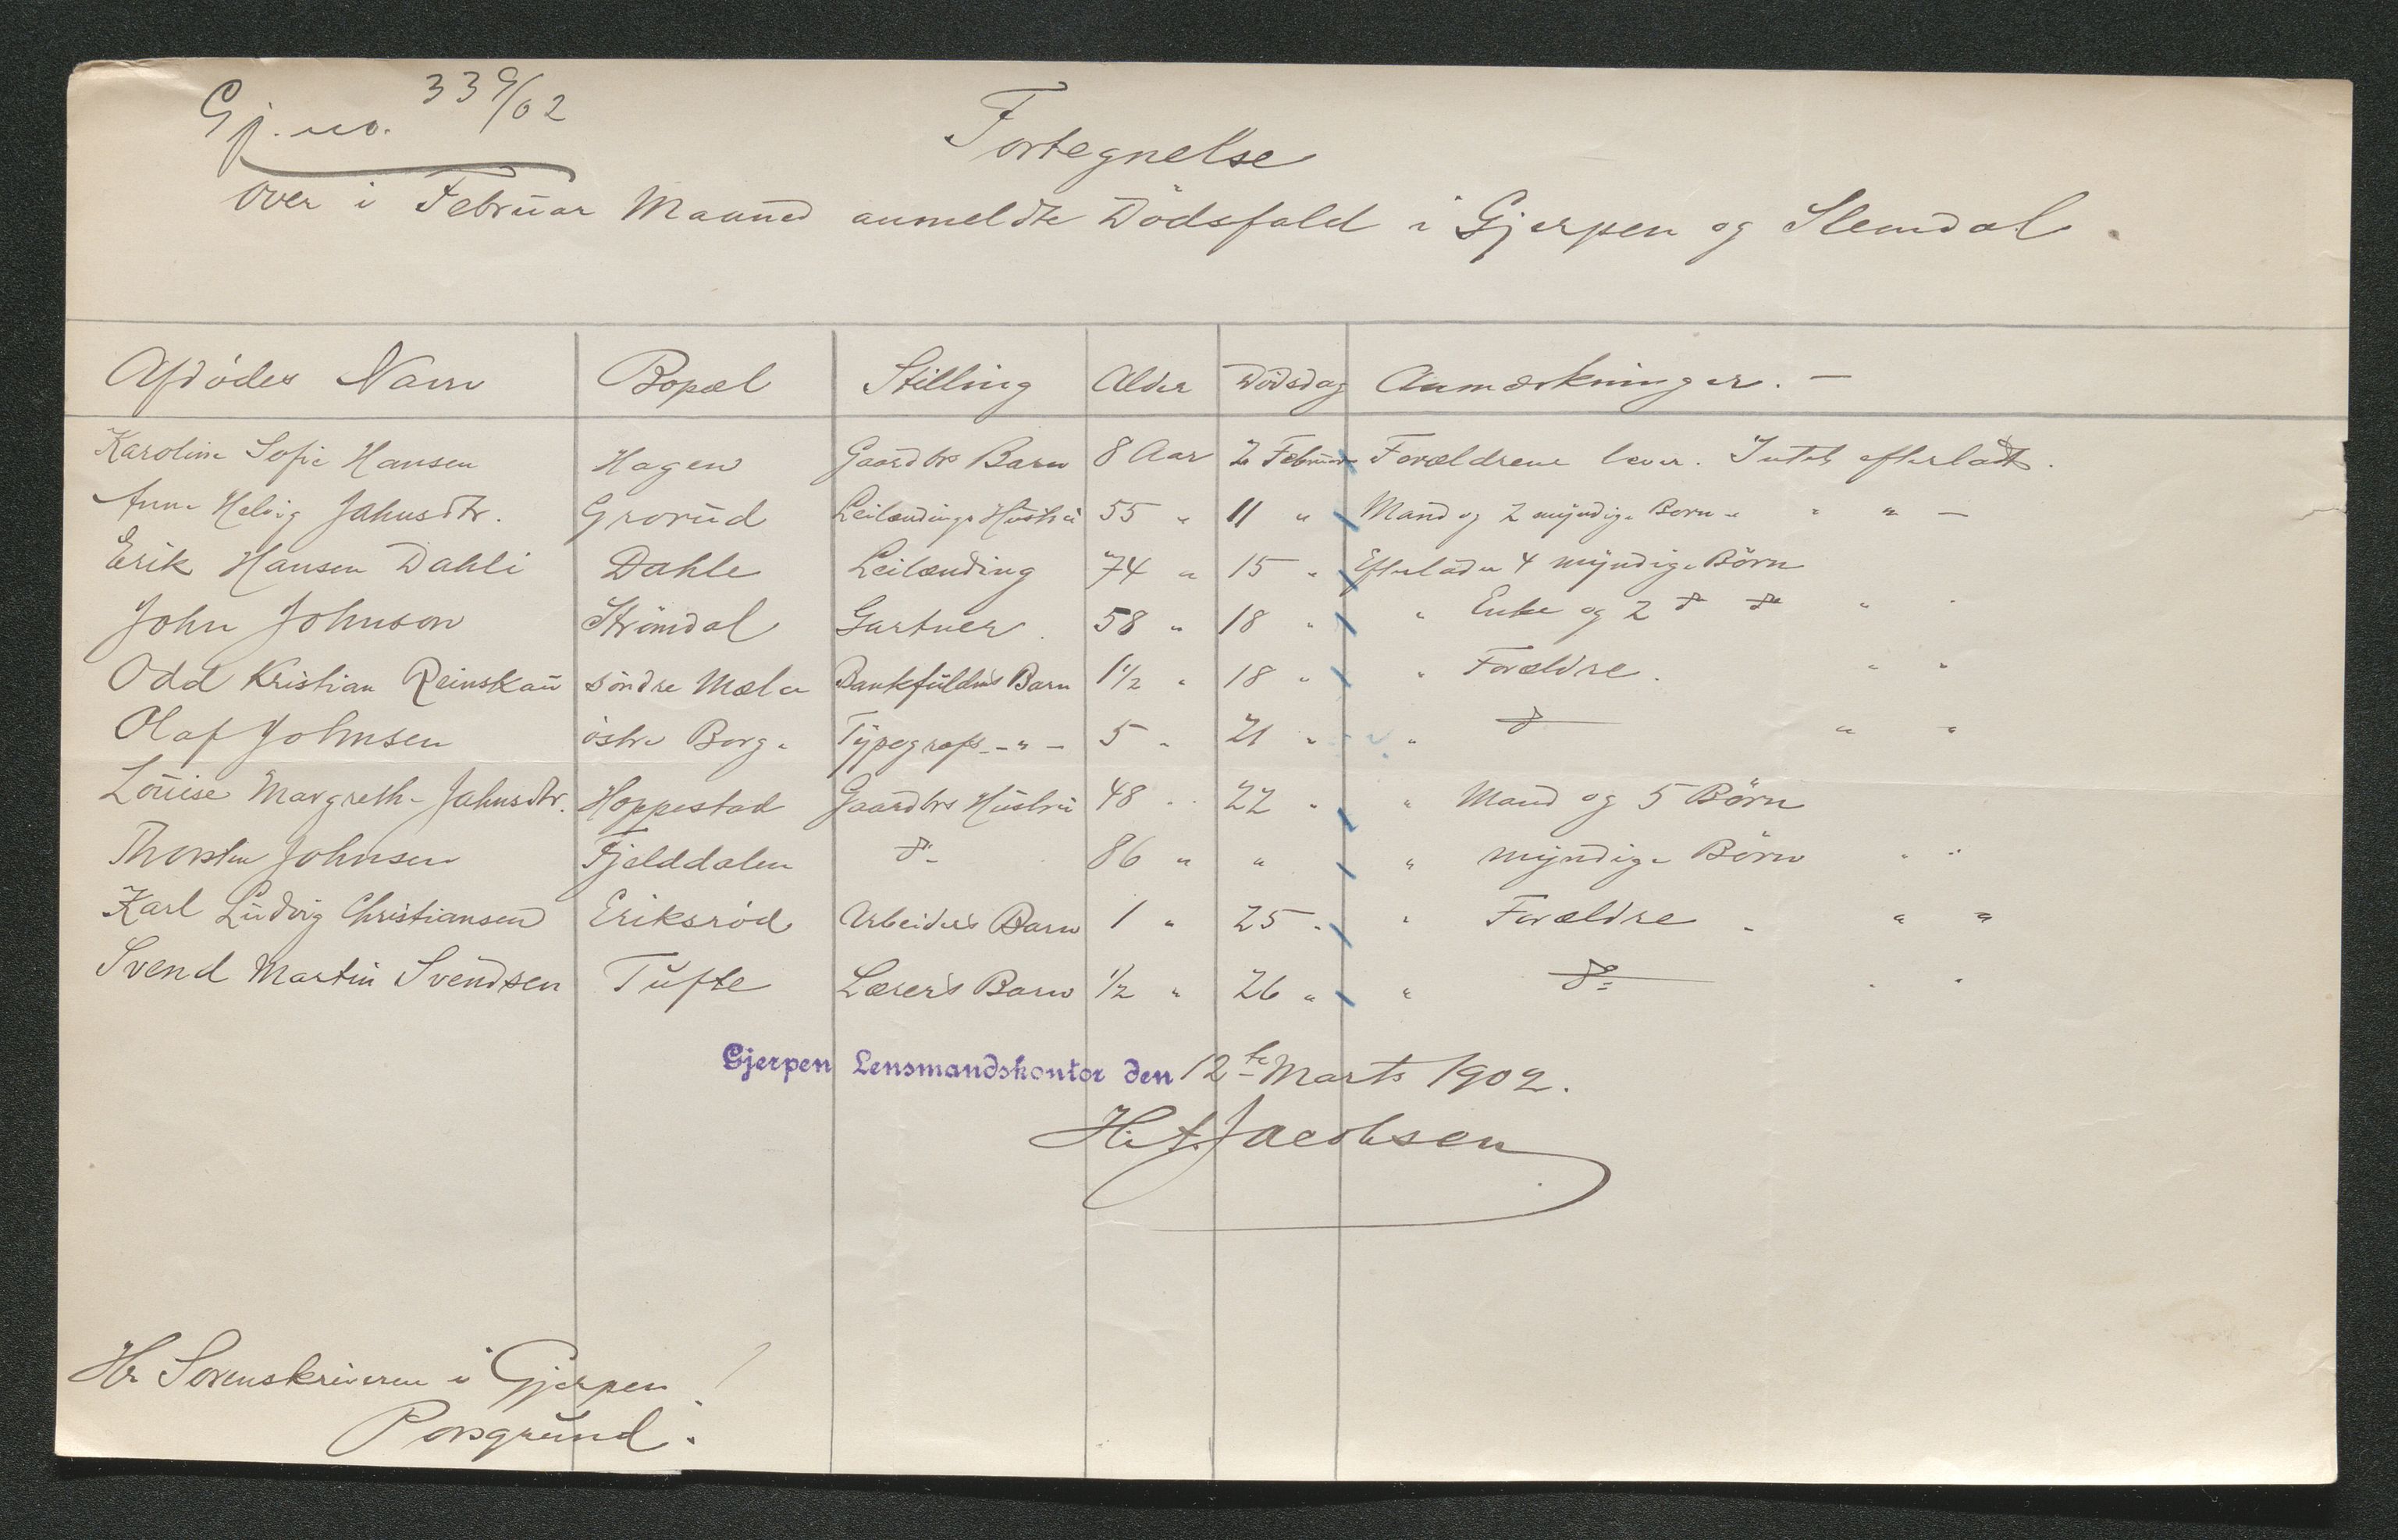 Gj. no. 339/02
Fortegnelse
over i Februar Maaned anmeldte Dødsfald i Gjerpen og Slemdal.
Afdødes Navn Bopæl Stilling Alder Dødsdag Anmærkninger. —
Karoline Sofie Hansen Hagen Gaardbrs Barn 8 Aar 2 Februar Forældrene lever. Intet efterladt.
Anne Helvig Jahnsdtr. Grorud Leilændings Hustru 55 " 11 " Mand og 2 myndige Børn " " " —
Erik Hansen Dahli Dahle Leilænding 74 " 15 " Efterlader 4 myndige Børn
John Johnson Strömdal Gartner 58 " 18 " " Enke og 2 do do " "
Odd Kristian Reinskau söndre Mæla Bankfuldm's Barn 1 1/2 " 18 " " Forældre. " "
Olaf Johnsen östre Borge Typografs - " - 5 " 21 " " do " "
Louise Margrethe Jahnsdtr. Hoppestad Gaardbrs Hustru 48 " 22 " " Mand og 5 Börn
Thorsten Johnsen Fjelddalen do 86 " " " myndige Börn " "
Karl Ludvig Christiansen Eriksröd Arbeider's Barn 1 " 25 " " Forældre " "
Svend Martin Svendsen Tufte Lærer's Barn 1/2 " 26 " " do " "
Gjerpen Lensmandskontor den 12te Marts 1902.
H. A. Jacobsen
Hr Sorenskriveren i Gjerpen!
Porsgrund.